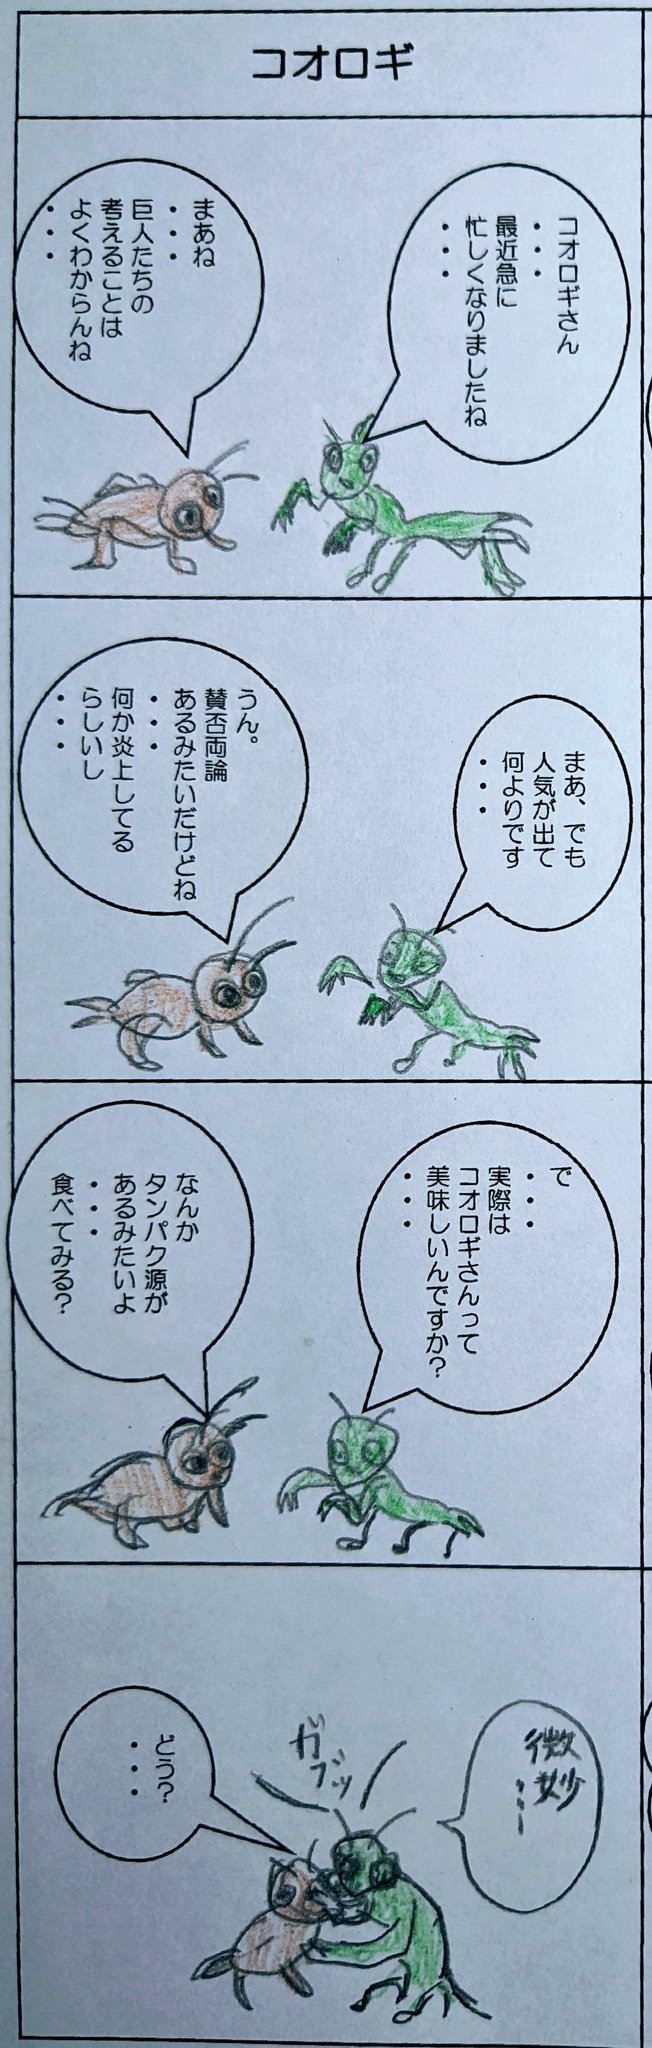 コオロギ
コオロギさん
・・・
最近急に
忙しくなりましたね
・・・
まあね
・・・
巨人たちの
考えることは
よくわからんね
・・・
まあ、でも
人気が出て
何よりです
・・・
うん。
賛否両論
あるみたいだけどね
・・・
何か炎上してる
らしいし
・・・
で
・・・
実際は
コオロギさんって
美味しいんですか?
・・・
なんか
タンパク源が
あるみたいよ
・・・
食べてみる?
微妙
・・・
ガブッ
どう?
・・・